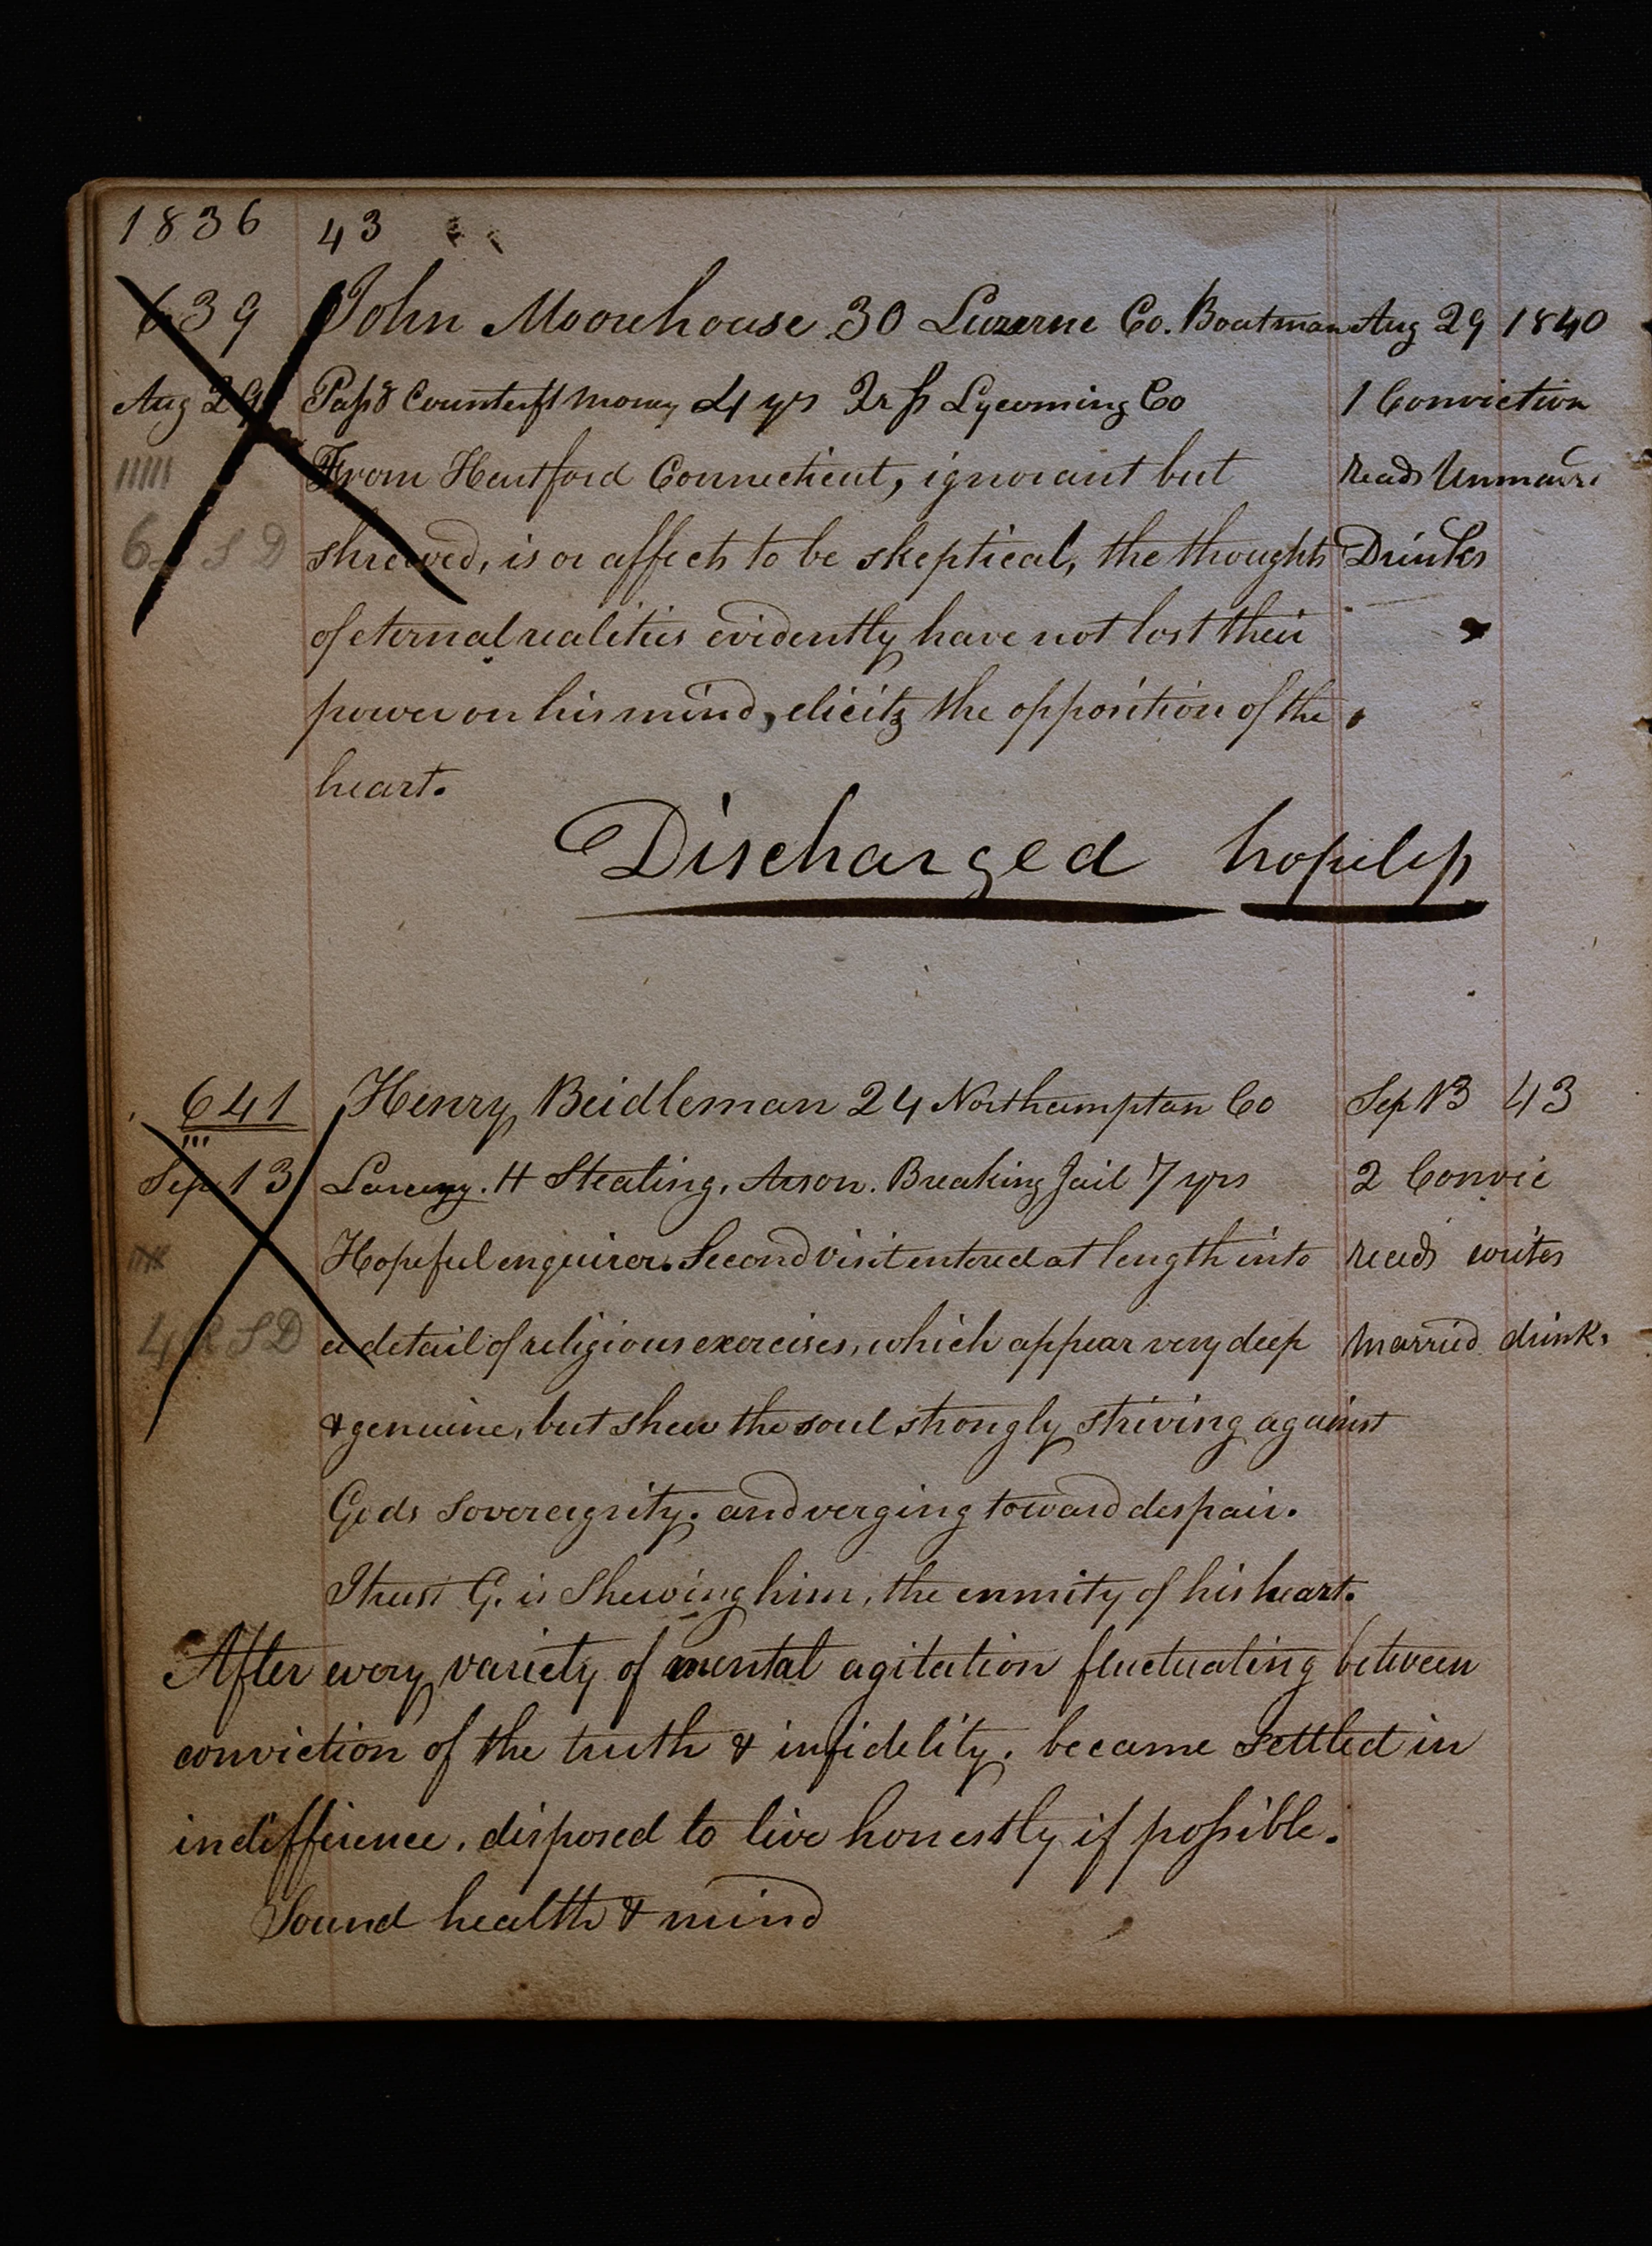 1836 43
639 John Moorehouse 30 Luzerne Co. Boatman Aug 29 1840
Aug 29 Passg Counterft money 4 yrs Lycoming Co 1 Conviction
From Hartford Connecticut, ignorant but reads Unmarr
shrewed, is or affects to be skeptical, the thoughts Drinks
6 S D
of eternal realities evidently have not lost their
power on his mind, elicitg the opposition of the
heart.
Discharged hopeless
641 Henry Beidleman 24 Northampton Co Sep 13 43
Sep 13 Larceny. H Stealing. Arson. Breaking Jail 7 yrs 2 Convic
Hopeful enquirer. Second visit entered at length into reads writes
4 R S D a detail of religious exercises, which appear very deep married drinks
& genuine, but shew the soul strongly striving against
Gods Sovereignity. and verging toward despair.
I trust G. is Shewing him, the enmity of his heart.
After every variety of mental agitation fluctuating between
conviction of the truth & infidelity. became settled in
indifference, disposed to live honestly if possible.
Sound health & mind